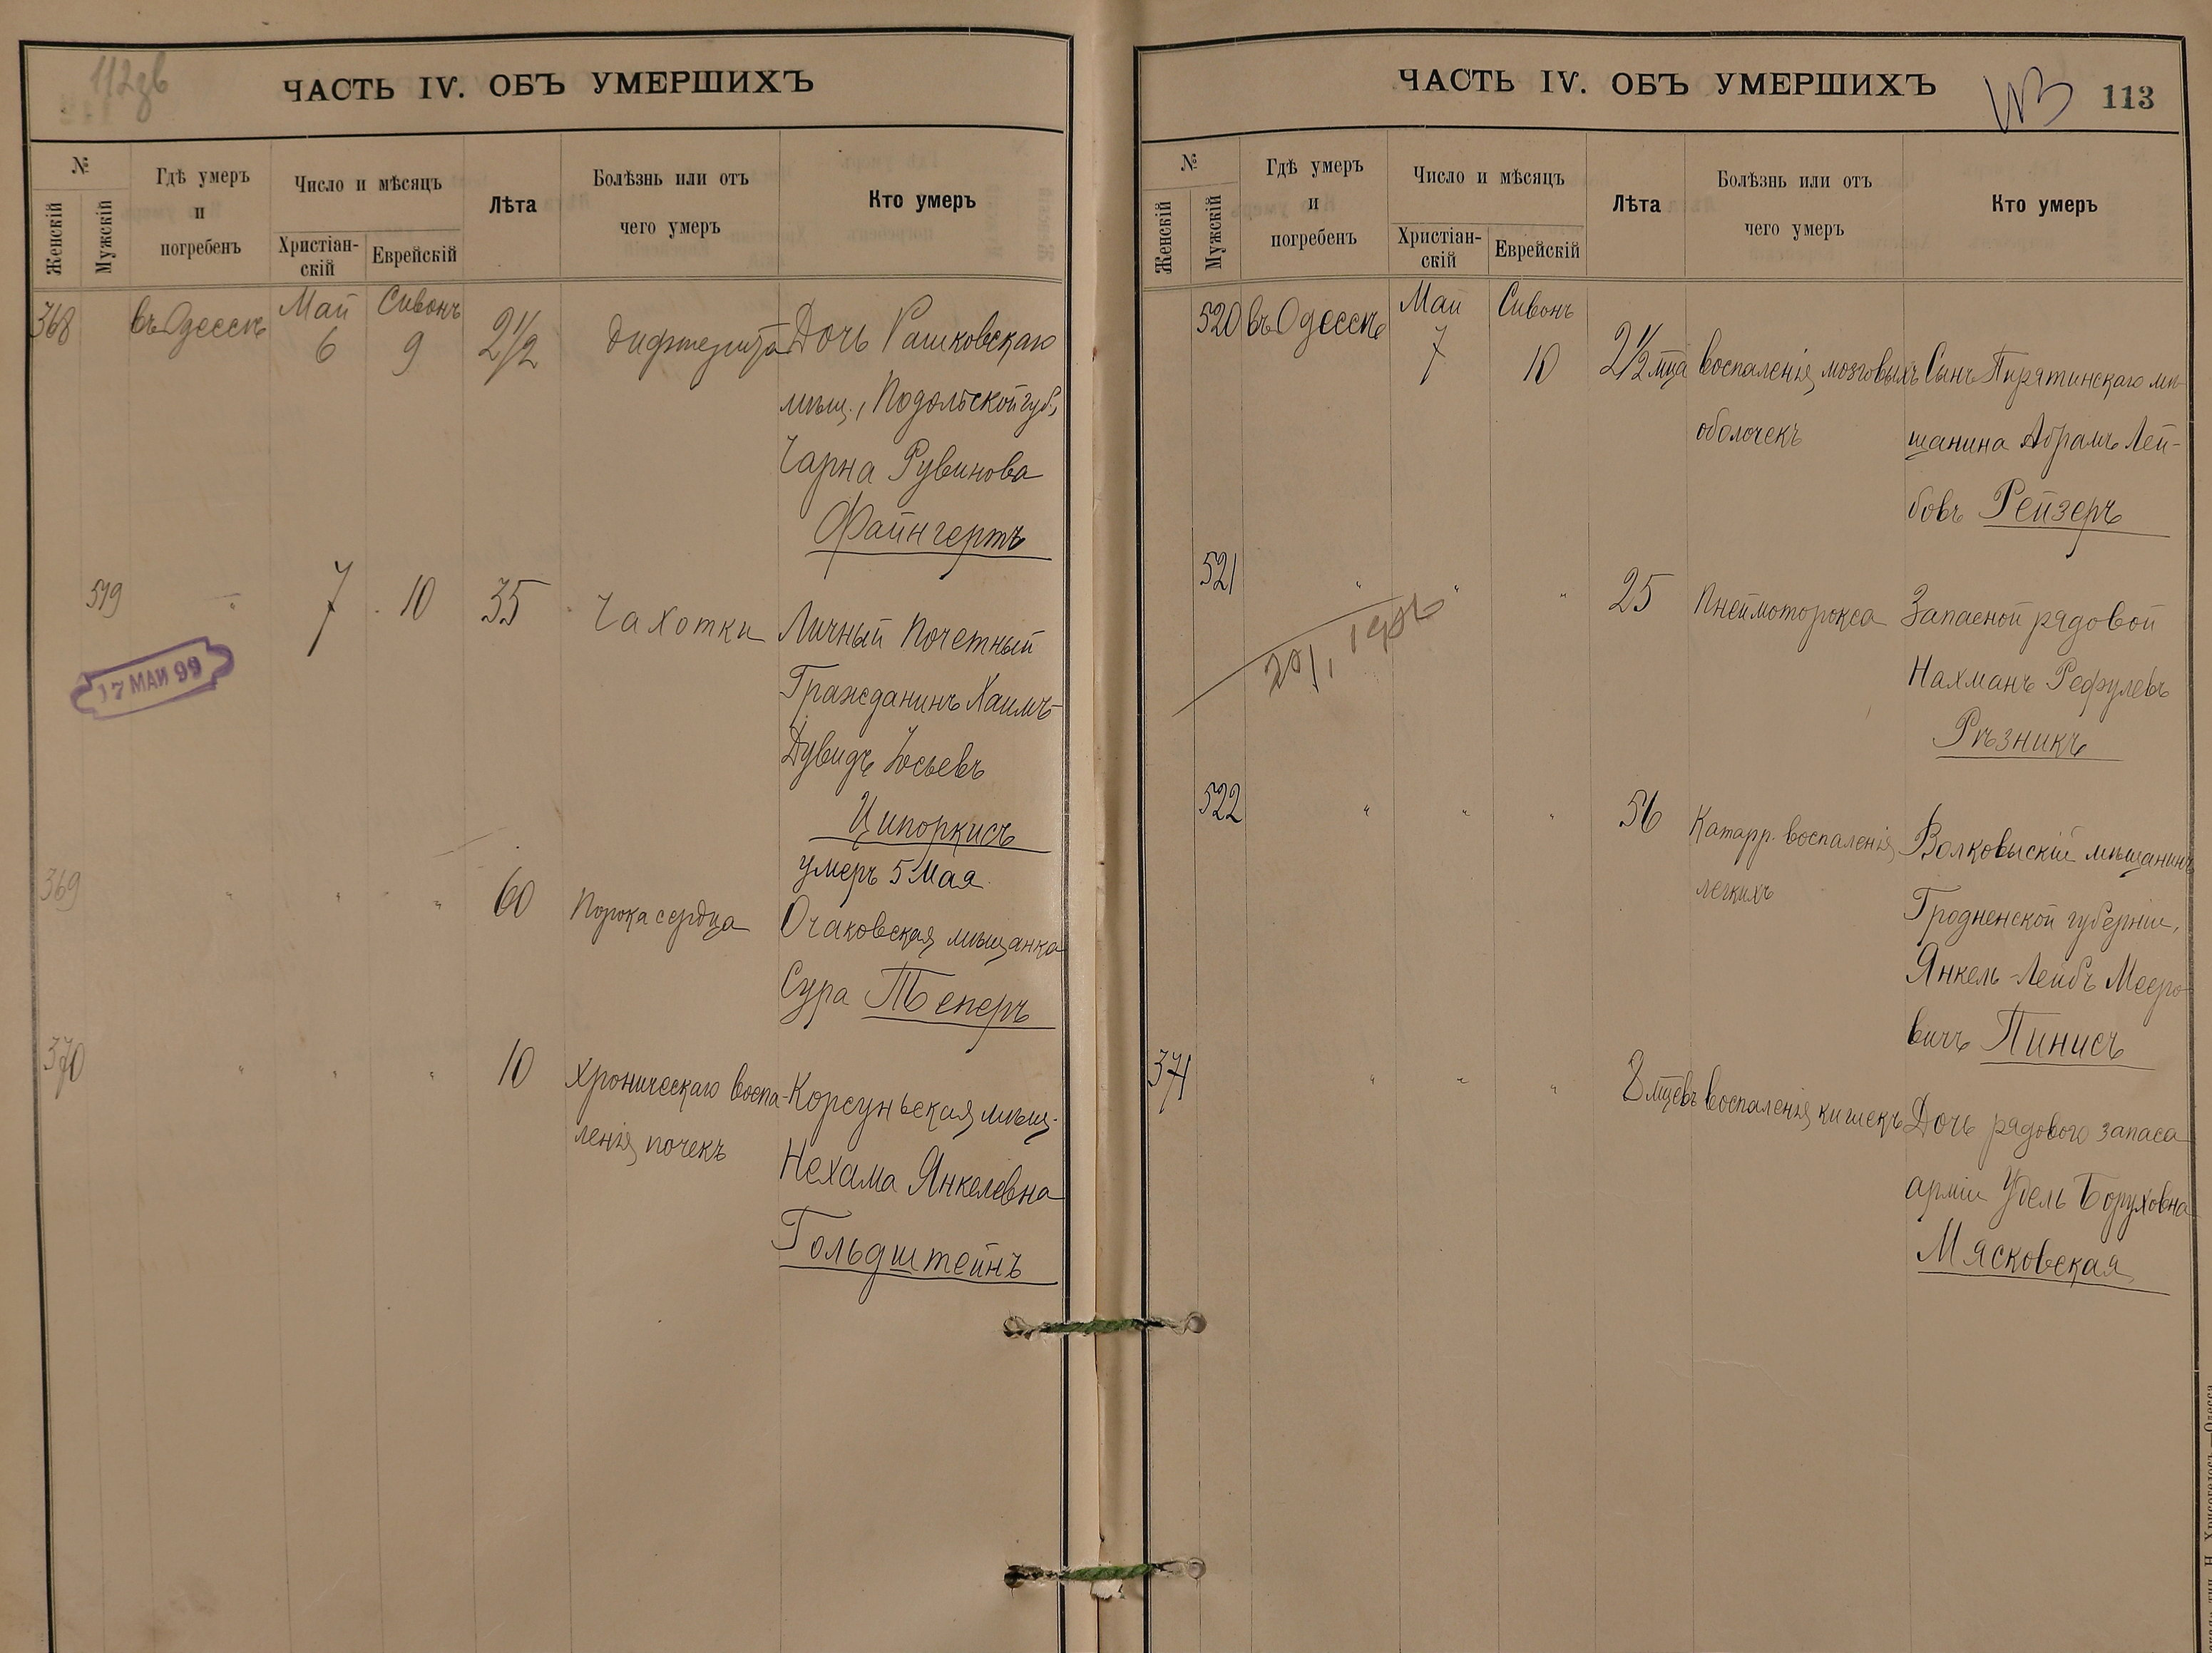 112 об
ЧАСТЬ IV. ОБЪ УМЕРШИХЪ
№
Женскій
Мужскій
Гдѣ умеръ
и
погребенъ
Число и мѣсяцъ
Христіан-
скій
Еврейскій
Лѣта
Болѣзнь или отъ
чего умеръ
Кто умеръ
368 въ Одессѣ Май 6 Сивонъ 9 2½ Дифтерита Дочь Рашковскаго
мѣщ., Подольской губ.,
Чарна Рувинова
Файнгертъ
519 " 7 10 35 Чахотки Личный Почетный
Гражданинъ Хаимъ-
Дувидъ Іосьевъ
Ципоркисъ
умеръ 5 Мая
17 МАИ 99
369 " " " 60 Порока сердца Очаковская мѣщанка
Сура Теперъ
370 " " " 10 Хроническаго воспа- Корсуньская мѣщ.
ленія почекъ Нехама Янкелевна
Гольдштейнъ
ЧАСТЬ IV. ОБЪ УМЕРШИХЪ
113
113
№
Женскій
Мужскій
Гдѣ умеръ
и
погребенъ
Число и мѣсяцъ
Христіан-
скій
Еврейскій
Лѣта
Болѣзнь или отъ
чего умеръ
Кто умеръ
520 въ Одессѣ Май 7 Сивонъ 10 2½ мца воспаленія мозговыхъ Сынъ Пирятинскаго мѣ-
оболочекъ щанина Абрамъ Лей-
бовъ Рейзеръ
521 " " " 25 Пнеймоторокса Запасной рядовой
Нахманъ Рефулевъ
Рѣзникъ
522 " " " 56 Катарр. воспаленія Волковыскій мѣщанинъ
легкихъ Гродненской губерніи,
Янкель-Лейбъ Мееро-
вичъ Пинисъ
371 " " " 8 мцевъ воспаленія кишекъ Дочь рядового запаса
арміи Удель Боруховна
Мясковская